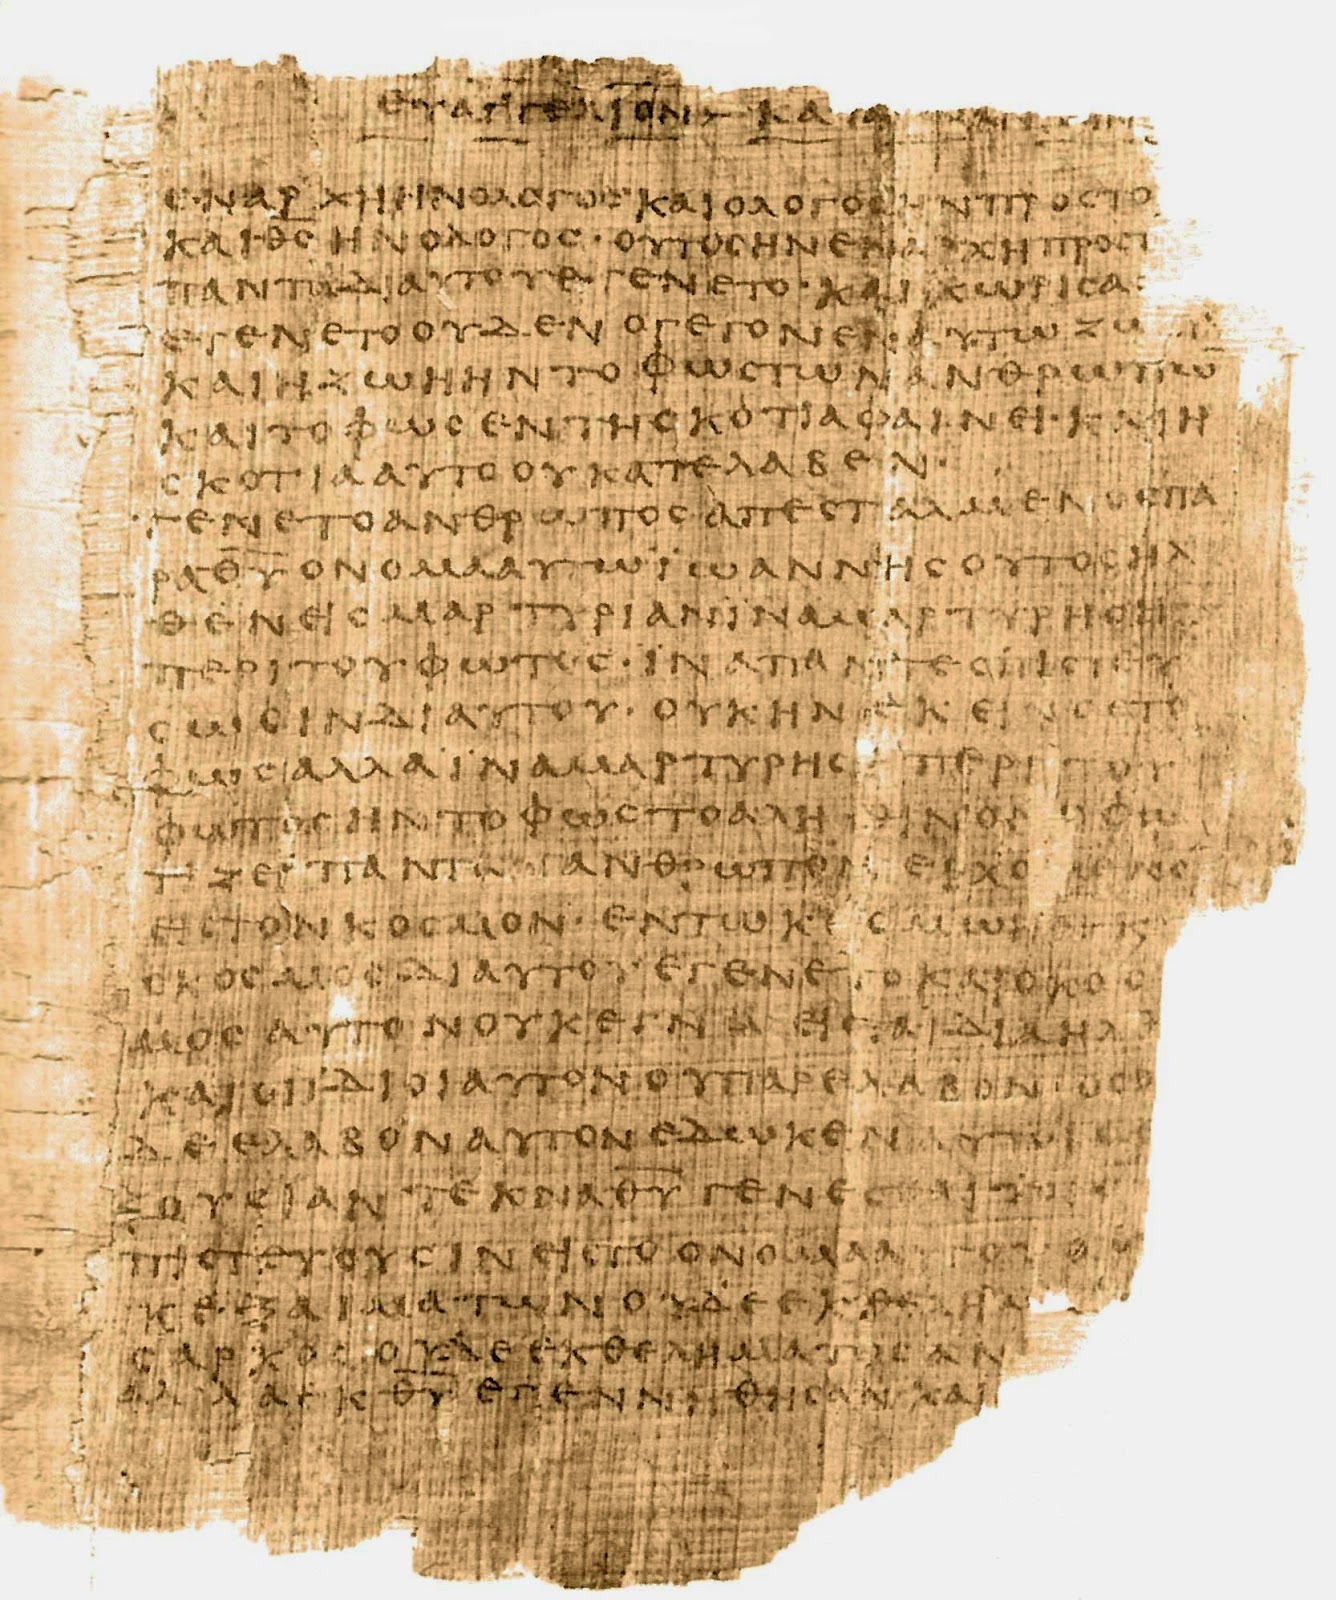 ευαγγελιον κατα
εναρχηηνολογοσκαιολογοσηνπροστο
καιθσηνολογος·ουτοσηνεναρχηπροστ
πανταδιαυτουεγενετο·καιχωρισα
εγενετοουδενογεγονενεναυτωζω
καιηζωηηντοφωστωνανθρωπω
καιτοφωσεντησκοτιαφαινει·καιη
σκοτιααυτοουκατελαβεν·
γενετοανθρωποσαπεσταλμενοσπα
ραθυονομααυτωϊωαννησουτοσηλ
θενεισμαρτυριανϊναμαρτυρηση
περιτουφωτοσ·ϊναπαντεσπιστευ
σωσινδιαυτου·ουκηνεκεινοστο
φωσαλλαϊναμαρτυρησηπεριτου
φωτοσηντοφωστοαληθινονοφω
τιζειπανταανθρωπονερχομενο
εισ τονκοσμον·εντωκοσμωηνκ
οκοσμοσδιαυτουεγενετοκαιοκοσ
μοσαυτονουκεγνωεισταϊδιαηλθ
καιοιϊδιοιαυτονουπαρελαβον·οσο
δεελαβοναυτονεδωκεναυτοισε
ξουσιαντεκναθυγενεσθαιτοισ
πιστευουσινειστοονομααυτουο
κεξαιματωνουδεεκθελημα
σαρκοσουδεεκθεληματοσαν
αλλαεκθυεγεννηθησανκαι